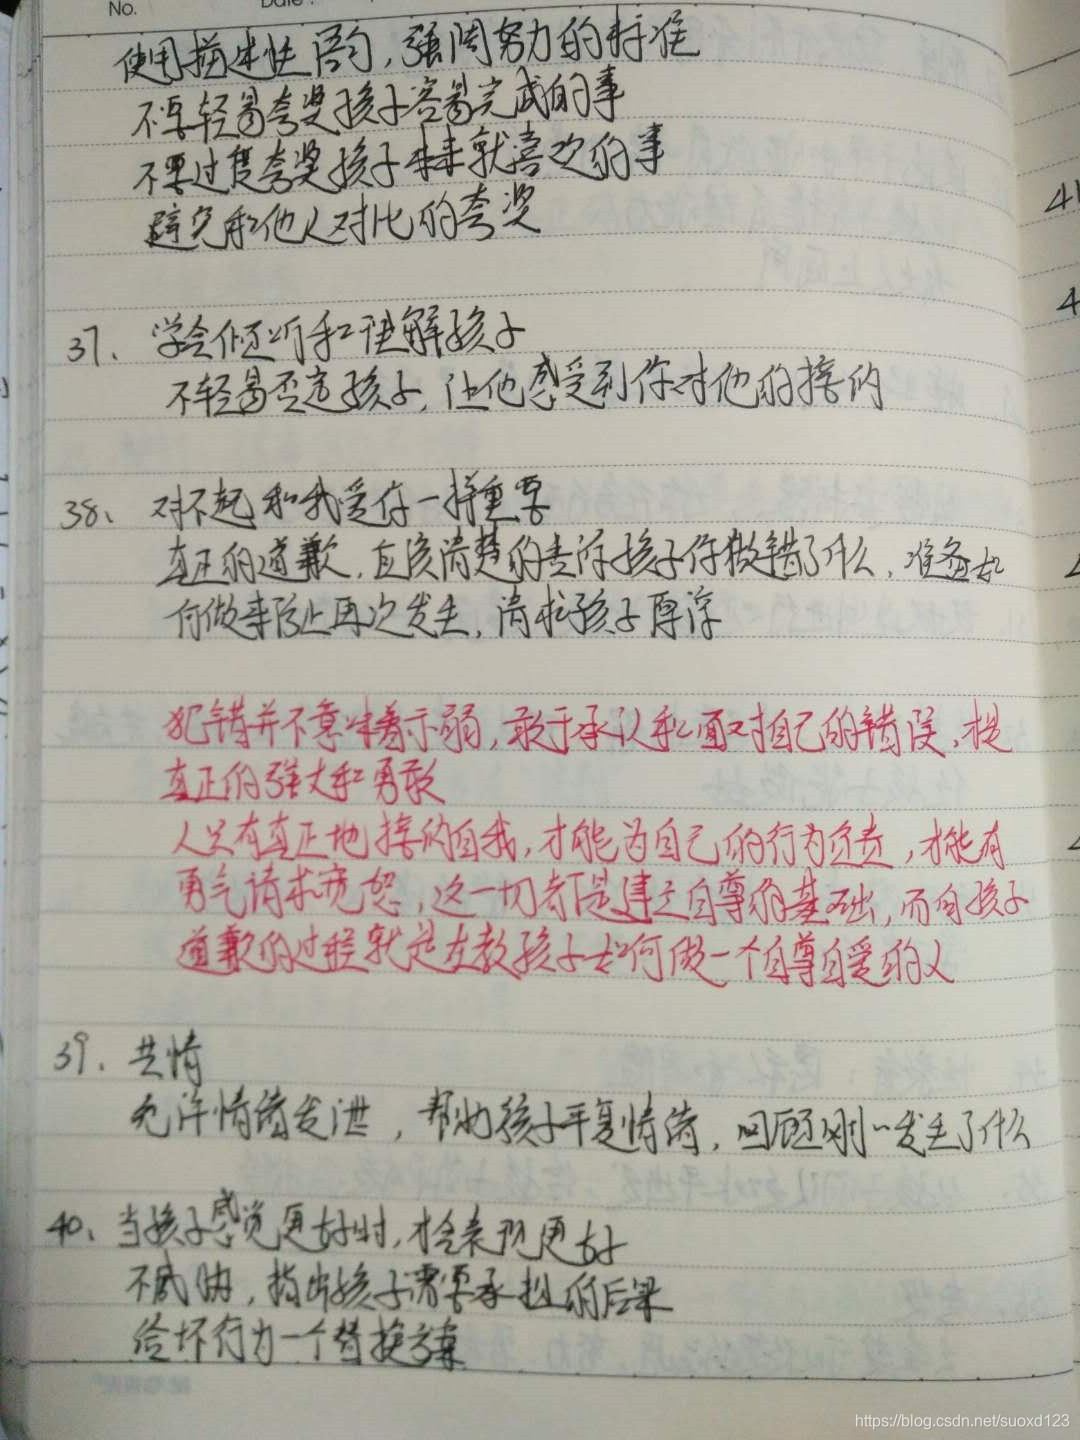 No.
Date:
使用描述性语句,强调努力的标准
不要轻易夸奖孩子容易完成的事
不要过度夸奖孩子本来就喜欢的事
避免和他人对比的夸奖
37、学会倾听和理解孩子
不轻易否定孩子,让他感受到你对他的接纳
38、对不起和我爱你一样重要
真正的道歉,应该清楚的告诉孩子你做错了什么,准备如
何做来防止再次发生,请求孩子原谅
犯错并不意味着示弱,敢于承认和面对自己的错误,是
真正的强大和勇敢
人只有真正地接纳自我,才能为自己的行为负责,才能有
勇气请求宽恕,这一切都是建立自尊的基础,而向孩子
道歉的过程就是在教孩子如何做一个自尊自爱的人
39、共情
允许情绪发泄,帮助孩子平复情绪,回顾刚刚发生了什么
40、当孩子感觉更好时,才会表现更好
不威胁,指出孩子需要承担的后果
给坏行为一个替换方案
https://blog.csdn.net/suoxd123